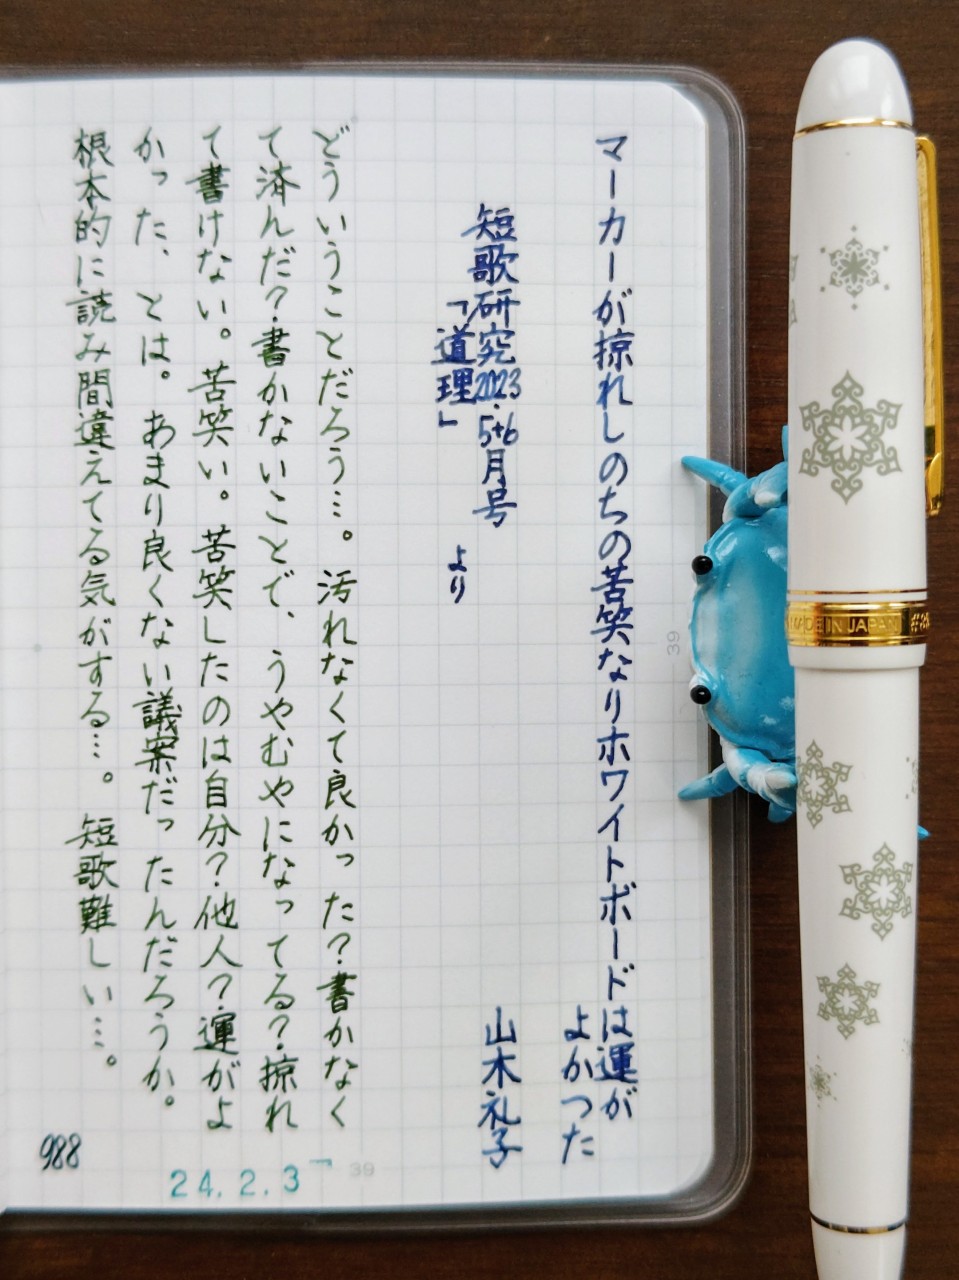 マーカーが掠れしのちの苦笑なりホワイトボードは運が
よかつた
短歌研究2023.5+6月号
「道理」
より
山木礼子
どういうことだろう…。汚れなくて良かった?書かなく
て済んだ?書かないことで、うやむやになってる?掠れ
て書けない。苦笑い。苦笑したのは自分?他人?運がよ
かった、とは。あまり良くない議案だったんだろうか。
根本的に読み間違えてる気がする…。短歌難しい…。
988
24.2.3
39
39
MADE IN JAPAN